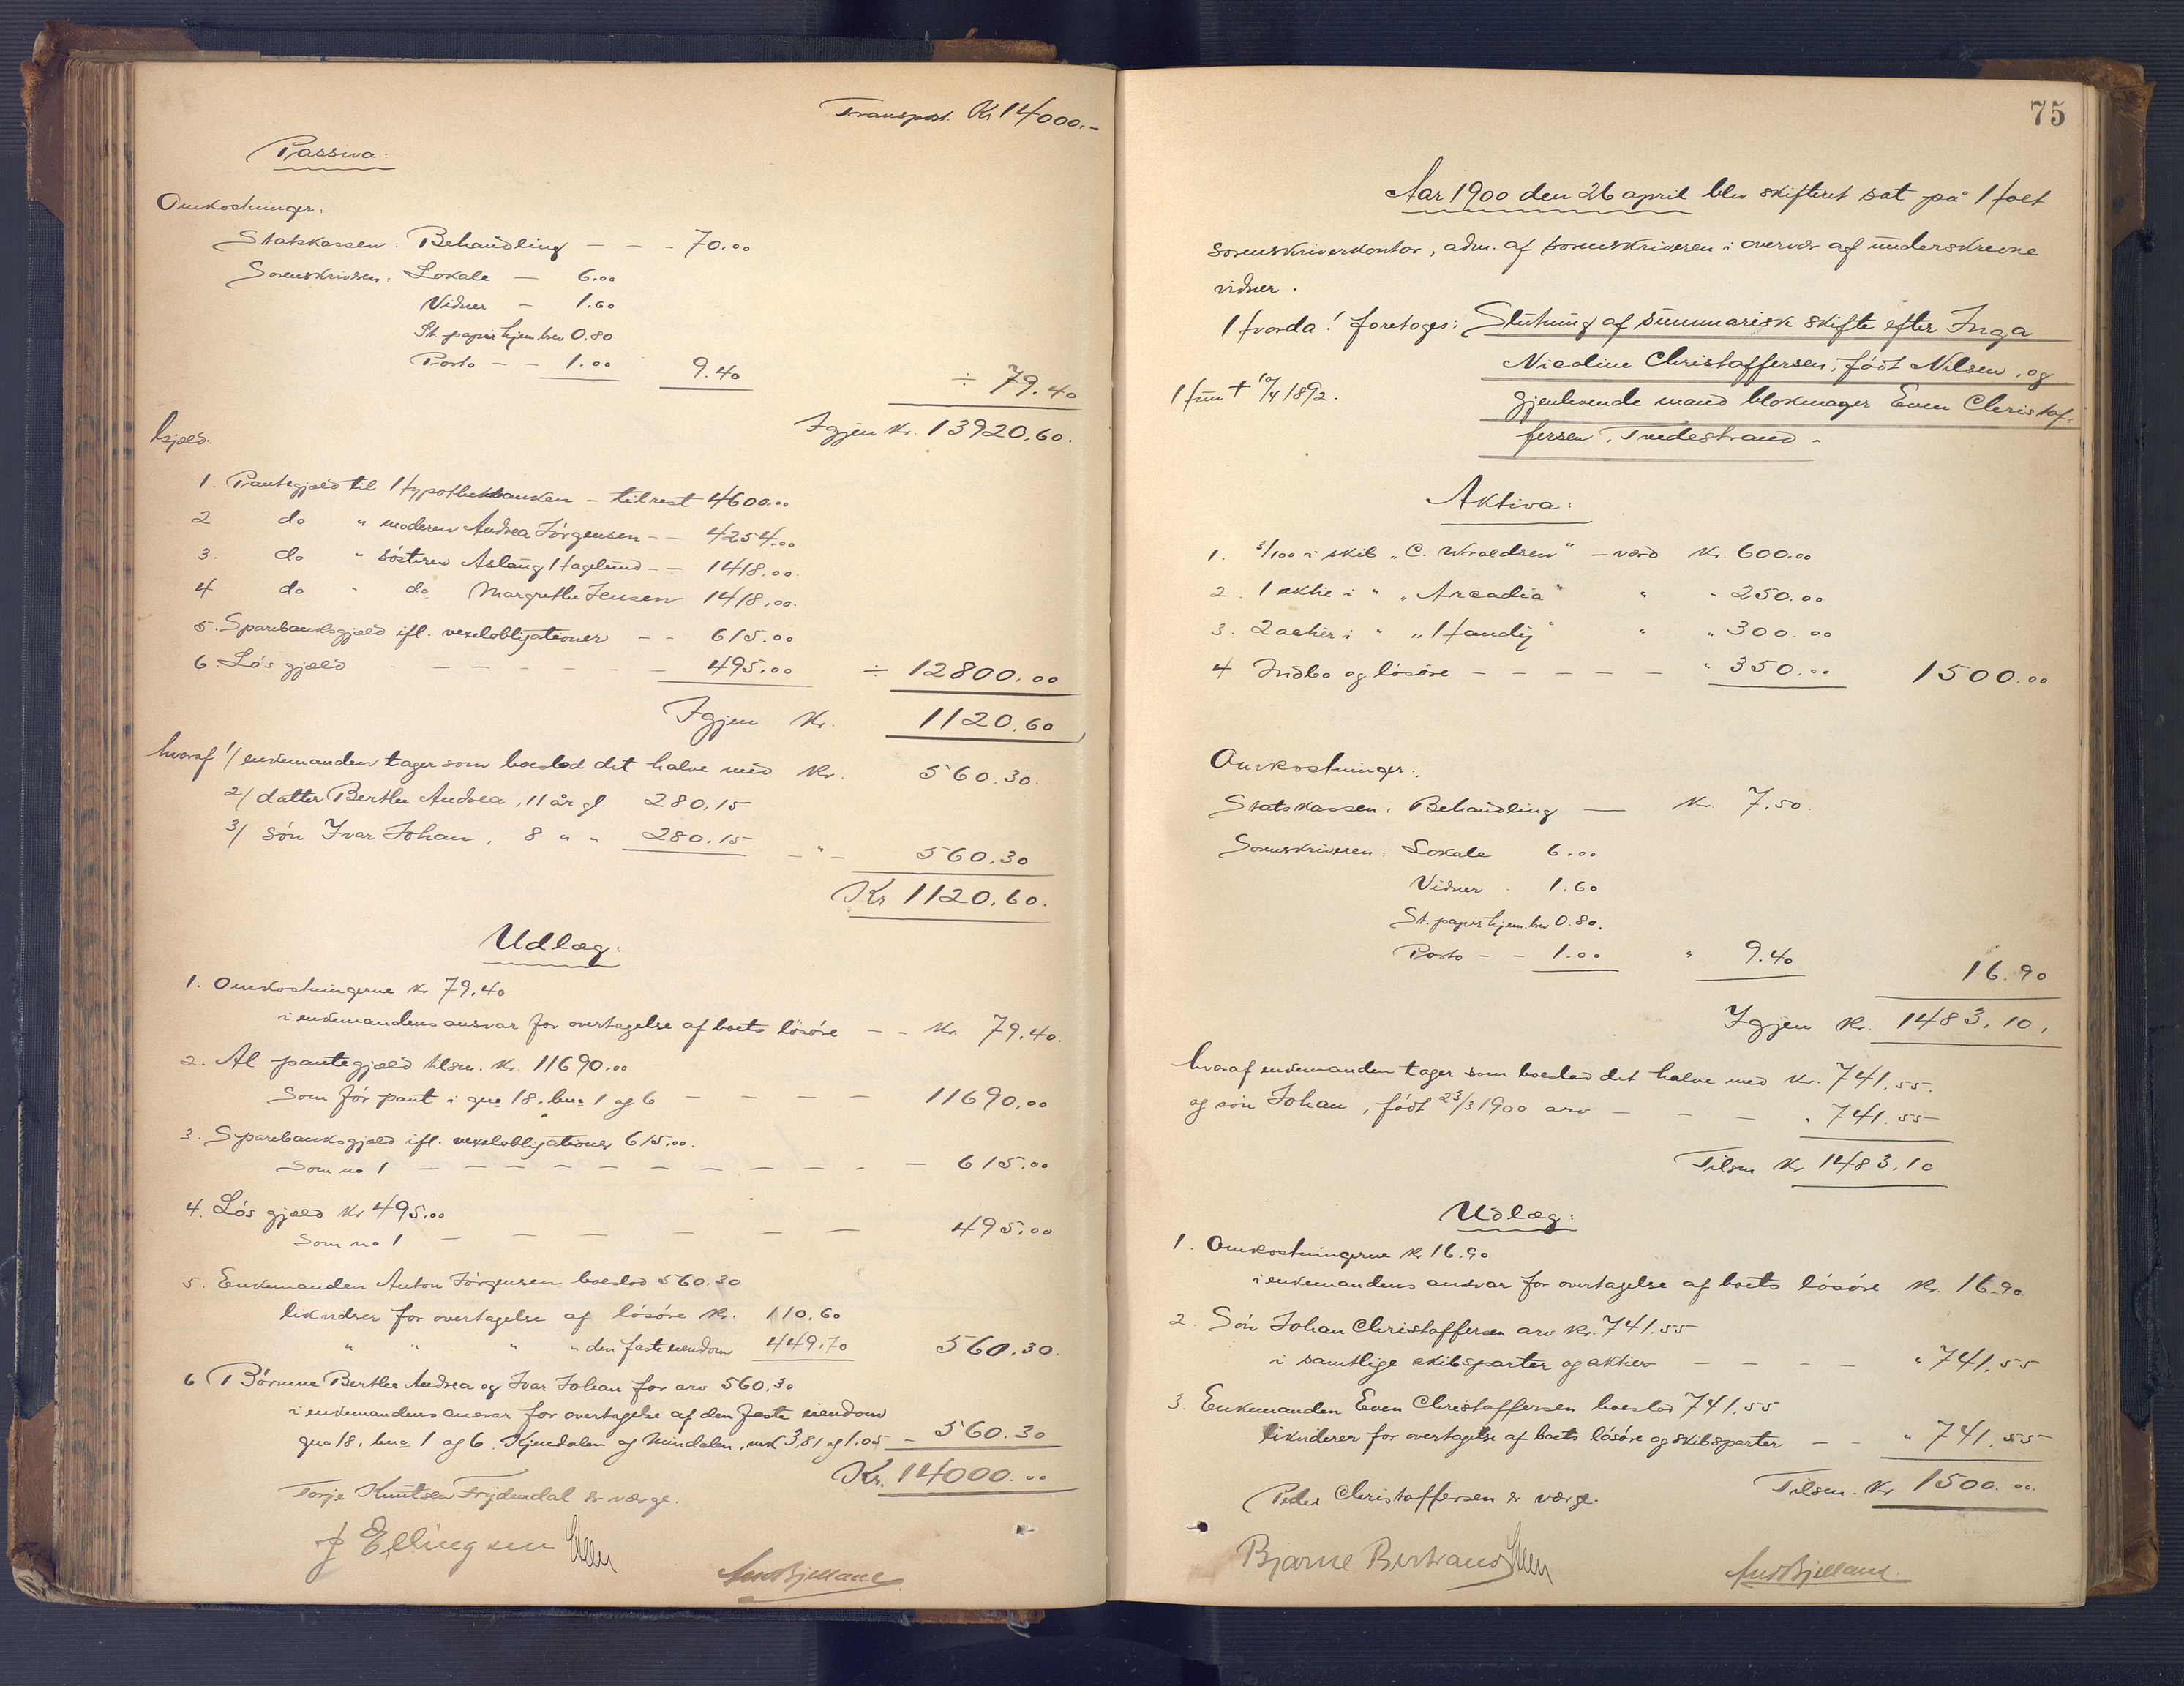 Transport. Kr 14000.-
Passiva:
Omkostninger:
Statskassen: Behandling - - - 70.00
Sorenskriveren: Lokale - 6.00
Vidner - 1.60
St. papir hjem.brev 0.80
Porto - - 1.00 9.40 ÷ 79.40
Igjen kr. 13920.60.
Gjæld:
1 Pantegjæld til Hypothekbanken - tilrest 4600.00
2 do " moderen Andrea Jørgensen - - 4254.00
3. do " søsteren Aslaug Hagelund - - 1418.00.
4 do " do Margrethe Jensen 1418.00.
5. Sparebanksgjæld ifl. vexelobligationer - - 615.00
6. Løs gjæld - - - - - - - 495.00 ÷ 12800.00
Igjen Kr. 1120.60
hvoraf 1/ enkemanden tager som boeslod det halve med Kr. 560.30.
2/ datter Berthe Andrea, 11 år gl. 280.15
3/ søn Ivar Johan, 8 " " 280.15 - " - 560.30
Kr 1120.60.
Udlæg:
1. Omkostningerne Kr 79.40
i enkemandens ansvar for overtagelse af boets løsøre - - Kr. 79.40.
2. Al pantegjæld tilsm. Kr. 11690.00
Som før pant i gno 18, bno 1 og 6 - - - - 11690.00
3. Sparebanksgjæld ifl. vexelobligationer 615.00.
Som no 1 - - - - - - - - - - 615.00
4. Løs gjæld Kr 495.00
Som no 1 - - - - - - 495.00
5. Enkemanden Anton Jørgensen boeslod 560.30
likvidrer for overtagelse af løsøre Kr. 110.60
" " " " den faste eiendom 449.70 560.30.
6 Børnene Berthe Andrea og Ivar Johan for arv 560.30
i enkemandens ansvar for overtagelse af den faste eiendom
gno 18, bno 1 og 6, Kjendalen og Mindalen, mk 3,81 og 1.05 - 560.30
Kr. 14000.00
Torje Knutsen Frydendal er værge.
J Ellingsen
And Bjelland
75
Aar 1900 den 26 april blev skifteret sat på Holt
sorenskriverkontor, adm. af sorenskriveren i overvær af underskrevne
vidner.
Hvorda! foretoges: Slutning af summarisk skifte efter Inga
Nicoline Christoffersen, født Nilsen, og
Hun † 10/4 1892.
gjenlevende mand blokmager Even Christof-
fersen, Tvedestrand -
Aktiva:
1. 3/100 i skib "C. Waaldsen" - værd Kr. 600.00
2. 1 aktie i " "Arcadia" " " 250.00
3. 2 actier i " "Handy" " " 300.00
4 Indbo og løsøre - - - - - " 350.00 1500.00
Omkostninger:
Statskassen: Behandling - Kr. 7.50.
Sorenskriveren: Lokale 6.00
Vidner - 1.60
St. papir hjem.brev 0.80.
Porto - - 1.00 " 9.40 16.90
Igjen Kr. 1483.10.
hvoraf enkemanden tager som boeslod det halve med Kr. 741.55.
og søn Johan, født 23/3 1900 arv - - - " 741.55
Tilsm Kr 1483.10
Udlæg:
1. Omkostningerne Kr 16.90
i enkemandens ansvar for overtagelse af boets løsøre Kr. 16.90
2. Søn Johan Christoffersen arv Kr. 741.55
i samtlige skibsparter og aktier - - - - " 741.55
3. Enkemanden Even Christoffersen boeslod 741.55
likviderer for overtagelse af boets løsøre og skibsparter - - " 741.55
Tilsm. Kr 1500.00.
Peder Christoffersen er værge.
Bjarne Bertrand
And Bjelland.